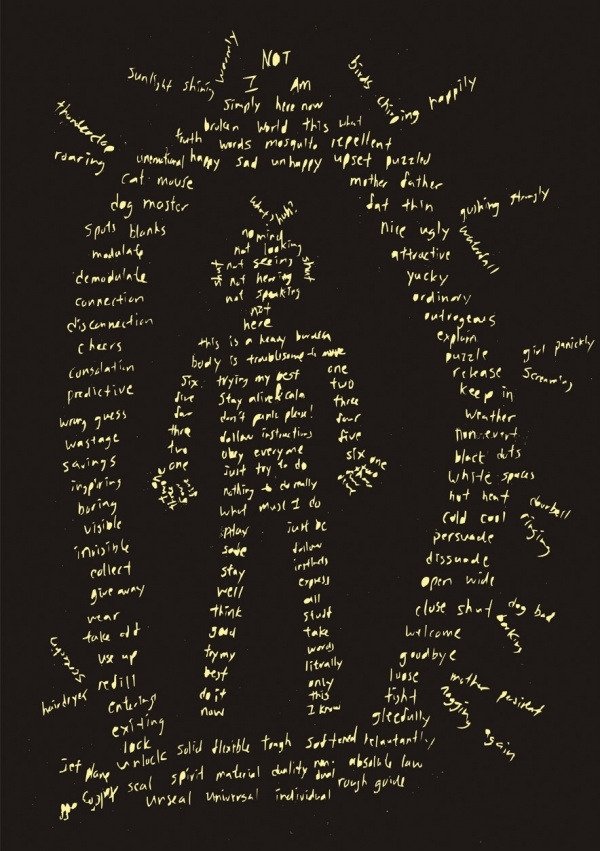 NOT
I Am
Simply here now
broken world this what
truth words mosquito repellent
unemotional happy sad unhappy upset puzzled
sunlight shining warmly
birds chirping happily
thunderclap
roaring
cat mouse
dog master
spots blanks
modulate
demodulate
connection
disconnection
cheers
consolation
predictive
wrong guess
wastage
savings
inspiring
boring
visible
invisible
collect
give away
wear
take off
use up
refill
entering
exiting
lock
unlock solid flexible tough softened reluctantly
seal spirit material duality non-dual absolute law
unseal universal individual rough guide
mother father
fat thin
nice ugly
attractive
yucky
ordinary
outrageous
explain
puzzle
release
keep in
weather
non-event
black dots
white spaces
hot heat
cold cool
persuade
dissuade
open wide
close shut
welcome
goodbye
loose
tight
gleefully
gushing strongly
waterfall
girl panickly
screaming
doorbell
ringing
dog bad
barking
mother persistent
nagging
again
hairdryer
jet plane
take off
what's huh?
no mind
not looking
shut not seeing shut
not hearing
not speaking
not
here
this is a heavy burden
body is troublesome to move
trying my best
stay alive & cala
don't panic please!
follow instructions
obey everyone
just try to do
nothing to do really
what must I do
six
five
four
three
two
one
one
two
three
four
five
six
one
play
safe
stay
well
think
good
try my
best
do it
now
just be
follow
instincts
express
all
stuff
take
words
literally
only
this
I know